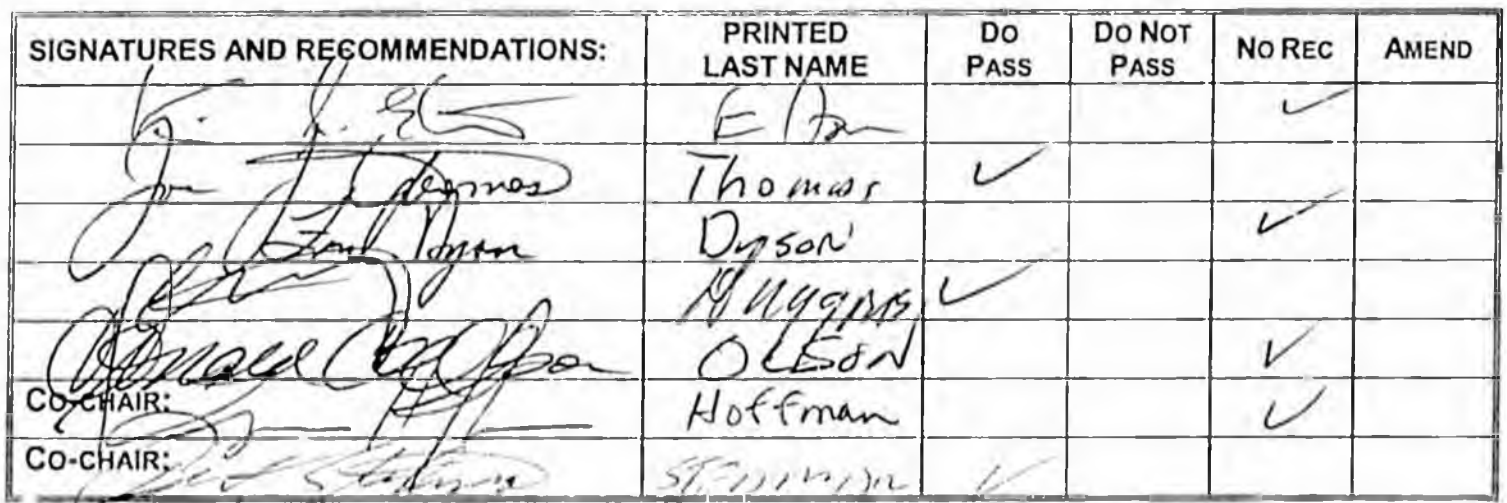 SIGNATURES AND RECOMMENDATIONS: PRINTED LAST NAME DO PASS DO NOT PASS NO REC AMEND
K. Elton ✓
Joe Thomas Thomas ✓
Fred Dyson Dyson ✓
Huggins ✓
Donald Olson OLSON ✓
CO-CHAIR: Hoffman ✓
CO-CHAIR: Stedman ✓